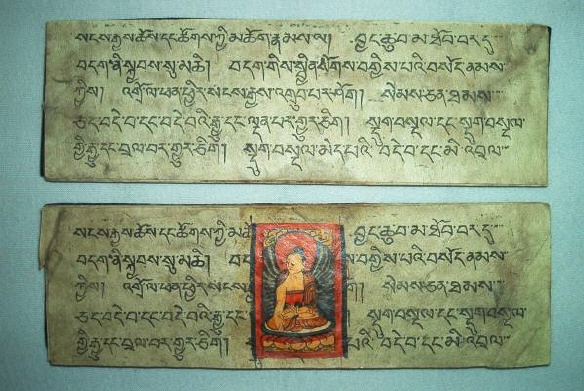 སངས་རྒྱས་ཆོས་དང་ཚོགས་ཀྱི་མཆོག་རྣམས་ལ། བྱང་ཆུབ་མ་ཐོབ་བར་དུ་
བདག་ནི་སྐྱབས་སུ་མཆི། བདག་གིས་སྦྱིན་སོགས་བགྱིས་པའི་བསོད་ནམས་
ཀྱིས། འགྲོ་ལ་ཕན་ཕྱིར་སངས་རྒྱས་འགྲུབ་པར་ཤོག། སེམས་ཅན་ཐམས་
ཅད་བདེ་བ་དང་བདེ་བའི་རྒྱུ་དང་ལྡན་པར་གྱུར་ཅིག། སྡུག་བསྔལ་དང་སྡུག་བསྔལ་
གྱི་རྒྱུ་དང་བྲལ་བར་གྱུར་ཅིག། སྡུག་བསྔལ་མེད་པའི་བདེ་བ་དང་མི་འབྲལ་
སངས་རྒྱས་ཆོས་དང་ཚོགས་ཀྱི་ བྱང་ཆུབ་མ་ཐོབ་བར་དུ་
བདག་ནི་སྐྱབས་སུ་མཆི། བགྱིས་པའི་བསོད་ནམས་
ཀྱིས། འགྲོ་ལ་ཕན་ཕྱིར་སངས་ ཤོག། སེམས་ཅན་ཐམས་
ཅད་བདེ་བ་དང་བདེ་བའི་རྒྱུ་དང་ སྡུག་བསྔལ་དང་སྡུག་བསྔལ་
གྱི་རྒྱུ་དང་བྲལ་བར་གྱུར་ཅིག། པའི་བདེ་བ་དང་མི་འབྲལ་